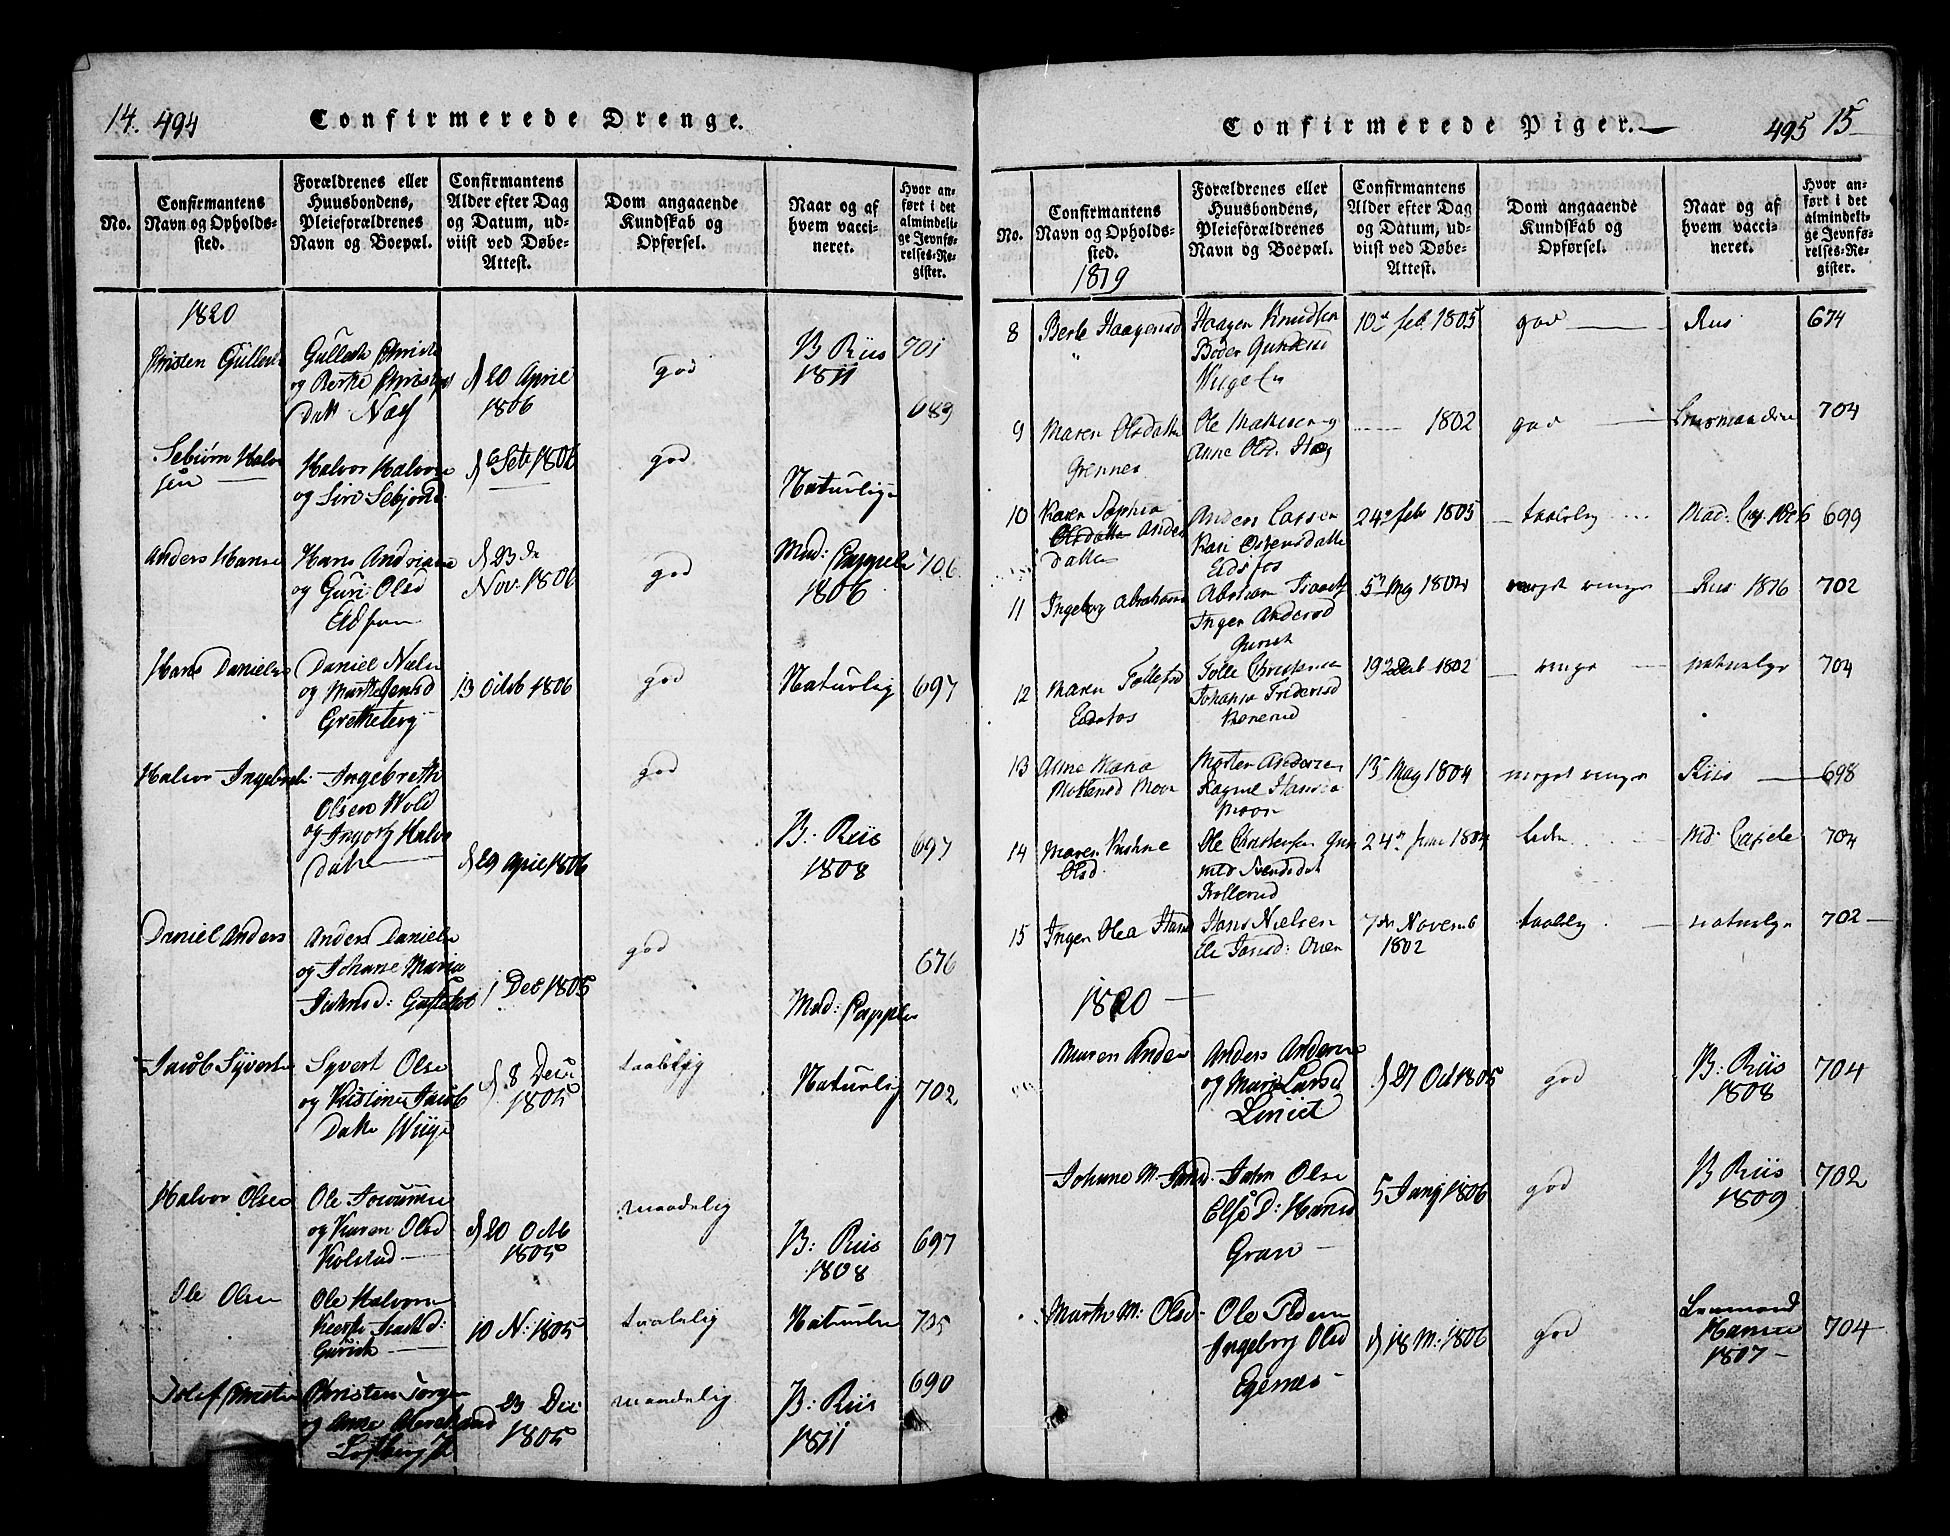 14. 494
Confirmerede Drenge.
No.
Confirmantens
Navn og Opholds-
sted.
Forældrenes eller
Huusbondens,
Pleieforældrenes
Navn og Boepæl.
Confirmantens
Alder efter Dag
og Datum, ud-
viist ved Døbe-
Attest.
Dom angaaende
Kundskab og
Opførsel.
Naar og af
hvem vacci-
neret.
Hvor an-
ført i det
almindeli-
ge Jevnfø-
relses-Re-
gister.
1820
Christen Gulle
Gulleck Christe
og Berthe Christe
Datt Næss
d 20 April
1806
god
B Riis
1811
701
689
Sebiørn Halvo
sen
Halvor Halvors
og Siri Sebjørnd
d 6 Sete 1806
god
Naturlig
Anders Hanse
Hans Andriase
og Guri Olsd
d 23 de
Nov. 1806
god
Mad: Cappele
1806
706
Hans Danielse
Daniel Nielse
og Marthe Jensd
Gretteberg
13 Octob 1806
god
Naturlig
697
Halvor Ingebreth
Ingebreth
Olsen Wold
og Ingborg Halvo
Datte
d 29 April 1806
god
B: Riis
1808
697
Daniel Anders
Anders Daniels
og Johane Maria
1 Dec 1805
god
Mad: Capple
676
Jacob Syverts
Syvert Olse
og Kistine Jacob
Datte Wiige
d 8 Dec
1805
taalelig
Naturlig
702
Halvor Olsen
Ole
og Karen Olsd
Kolstad
d 20 Octb
1805
maadelig
B: Riis
1808
697
Ole Olsen
Ole Halvorse
Gurich
10 N: 1805
taalelig
Naturlie
705
Christen Jørgen
og Anne
23 Dec
1805
maadelig
B: Riis
1811
690
Confirmerede Piger.
495 15
No.
Confirmantens
Navn og Opholds-
sted.
Forældrenes eller
Huusbondens,
Pleieforældrenes
Navn og Boepæl.
Confirmantens
Alder efter Dag
og Datum, ud-
viist ved Døbe-
Attest.
Dom angaaende
Kundskab og
Opførsel.
Naar og af
hvem vacci-
neret.
Hvor an-
ført i det
almindeli-
ge Jevnfø-
relses-Re-
gister.
1819
8
Berte Haagensd
Haagen Knudsen
10 feb. 1805
god
Riis
674
9
Maren Olsdatte
Grennes
Ole Mathisen og
Anne Olsd. Hæg
1802
god
704
10
Karen Sophia
Olsdatte Anders
Datter
Anders Larsen
Kari Ostensdatte
Eidsfos
24 feb 1805
taalelig
Mad:
699
11
Ingeborg Abrahams
Abraham Isaachs
Inger Andersd
Gurich
5 May 1804
meget ringe
Riis 1816
702
12
Maren Tollefsd
Eidsfos
Tolle Christensen
Johanne Fridericsd
19 Deb 1802
ringe
naturlige
704
13
Anne Maria
Mortensd Moen
Morten Andersen
Ragnil Hansen
Moen
13 May 1804
meget ringe
Riis
698
14
Maren
Olsd.
Ole Christensen
Kollerud
24 Juni 1804
Md: Capele
704
15
Inger Olea Hansd
Hans Nielsen
Ele Jansd: Oven
7de Novemb
1802
taalelig
naturlige
702
1820
Maren Anders
Anders Anderse
og Marie Larsd
d 27 Oct 1805
god
B: Riis
1808
704
Johane M. Jansd.
John Olse
Else D: Hansd
Gran
5 Junj 1806
god
B Riis
1809
702
Marthe M: Olsd
Ole
Ingeborg Olsd
Egernes
d 18 M: 1806
god
Hanse
1807
704